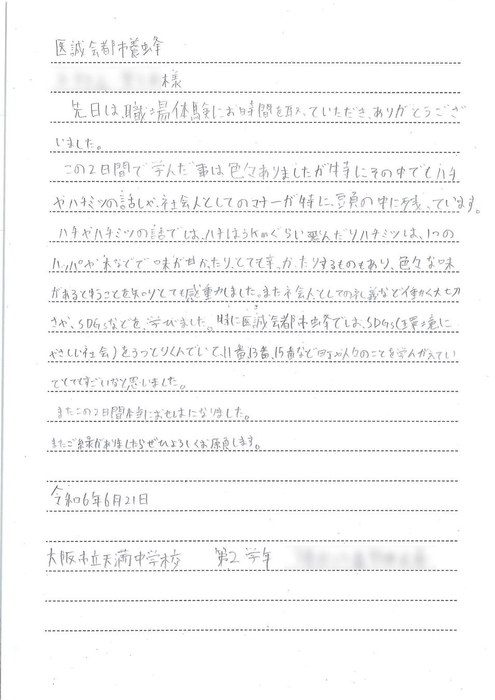 医誠会都市養蜂
様
先日は、職場体験にお時間を取っていただき、ありがとうござ
いました。
この2日間で学んだ事は色々ありましたが特にその中でもハチ
やハチミツの話しや、社会人としてのマナーが特に、頭の中に残っています。
ハチやハチミツの話では、ハチは3kmぐらい飛んだりハチミツは、1つの
ハッパや木などで味が甘かったり、とても辛かったりするものもあり、色々な味
があるということを知りとても感動しました。また社会人としての礼義など働く大切
さや、SDGsなどを、学びました。特に医誠会都市養蜂では、SDGs(環境に
やさしい社会)をうっとりくんでいて、11番、13番、15番など町や人のことを学んがえてい
てとてもすごいなと思いました。
またこの2日間本当におせわになりました。
またご縁がありましたらぜひよろしくお願します。
令和6年6月21日
大阪市立天満中学校 第2学年